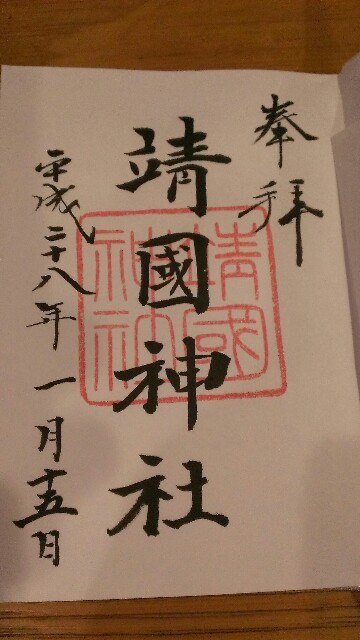 奉拝
靖國神社
靖國
神社
平成二十八年一月十五日